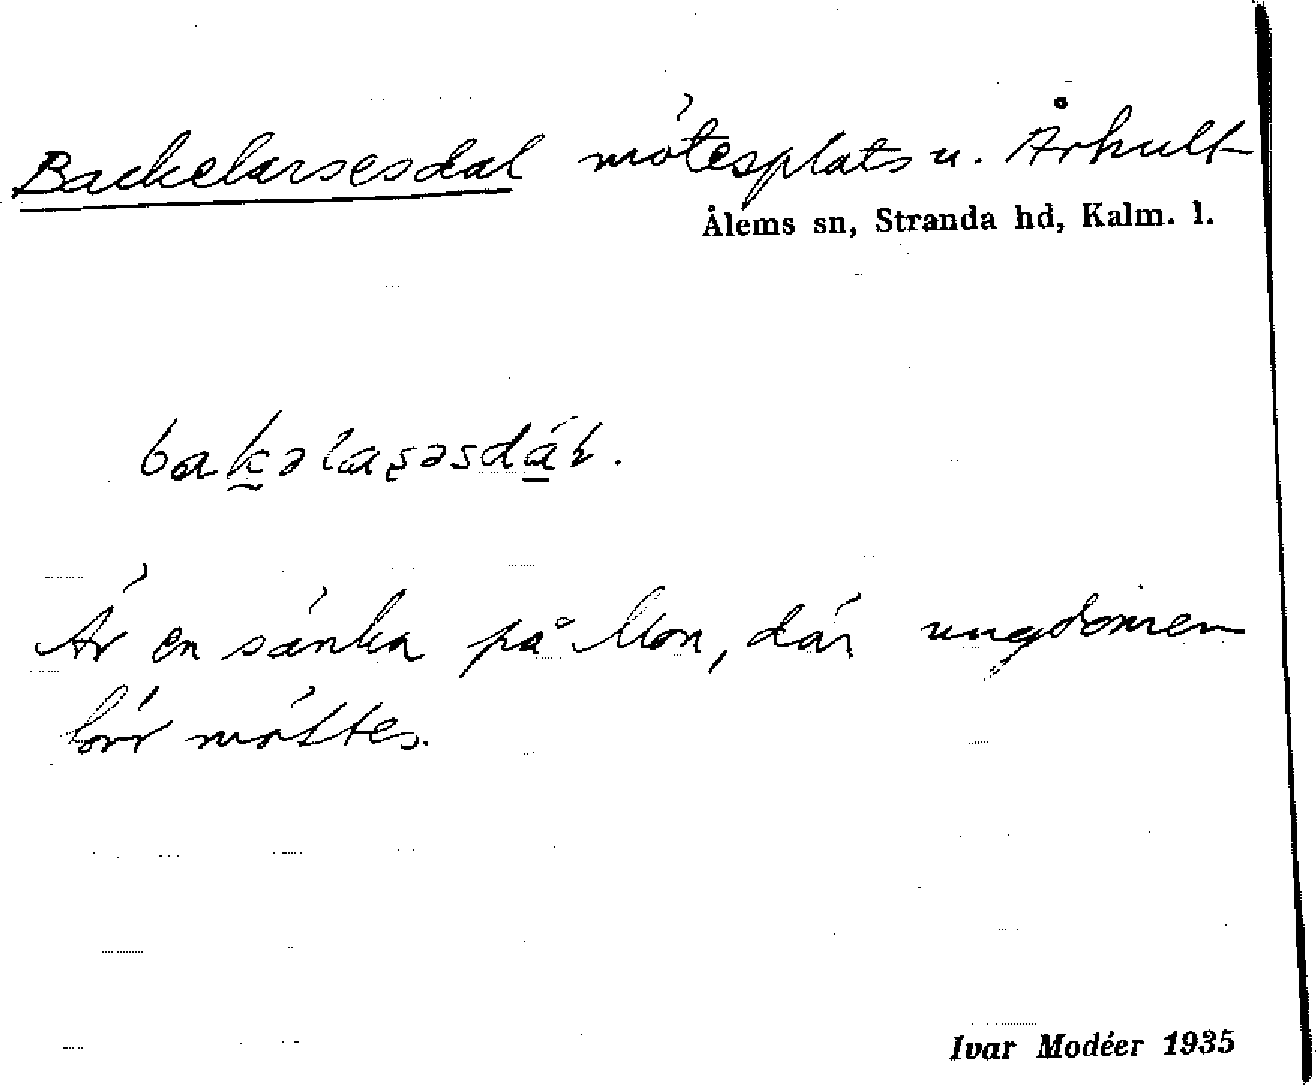 Backelarsesdal mötesplats u. Århult
Ålems sn, Stranda hd, Kalm. l.
bakəlaʂəsdáɫ.
Är en sänka på Mon, där ungdomen
förr möttes.
Ivar Modéer 1935